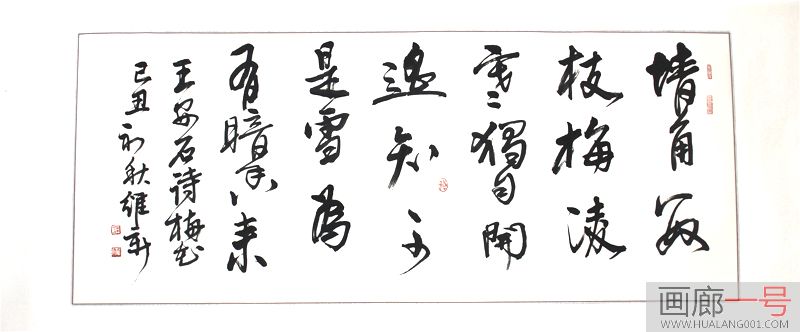 墙角数
枝梅凌
寒獨自開
遥知不
是雪為
有暗香来
王安石诗梅花
己丑初秋維新
画廊一号
WWW.HUALANG001.COM